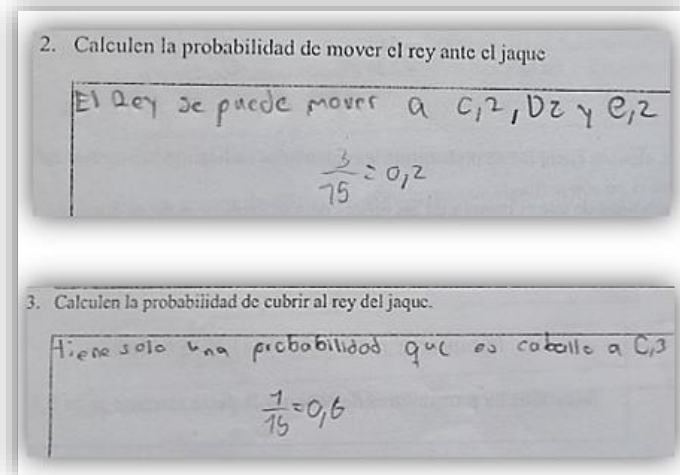 2. Calculen la probabilidad de mover el rey ante el jaque
El Rey se puede mover a C,2, D2 y e,2
3/15 = 0,2
3. Calculen la probabilidad de cubrir al rey del jaque.
tiene solo una probabilidad que es caballo a C,3
1/15 = 0,6